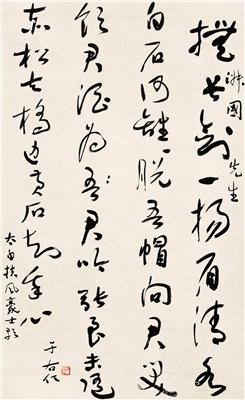 國先生
撫長劍一揚眉清水
白石何離離脫吾帽向君笑
飲君酒為吾君吟張良未逐
赤松去橋邊黃石知我心
太白扶風豪士歌
于右任